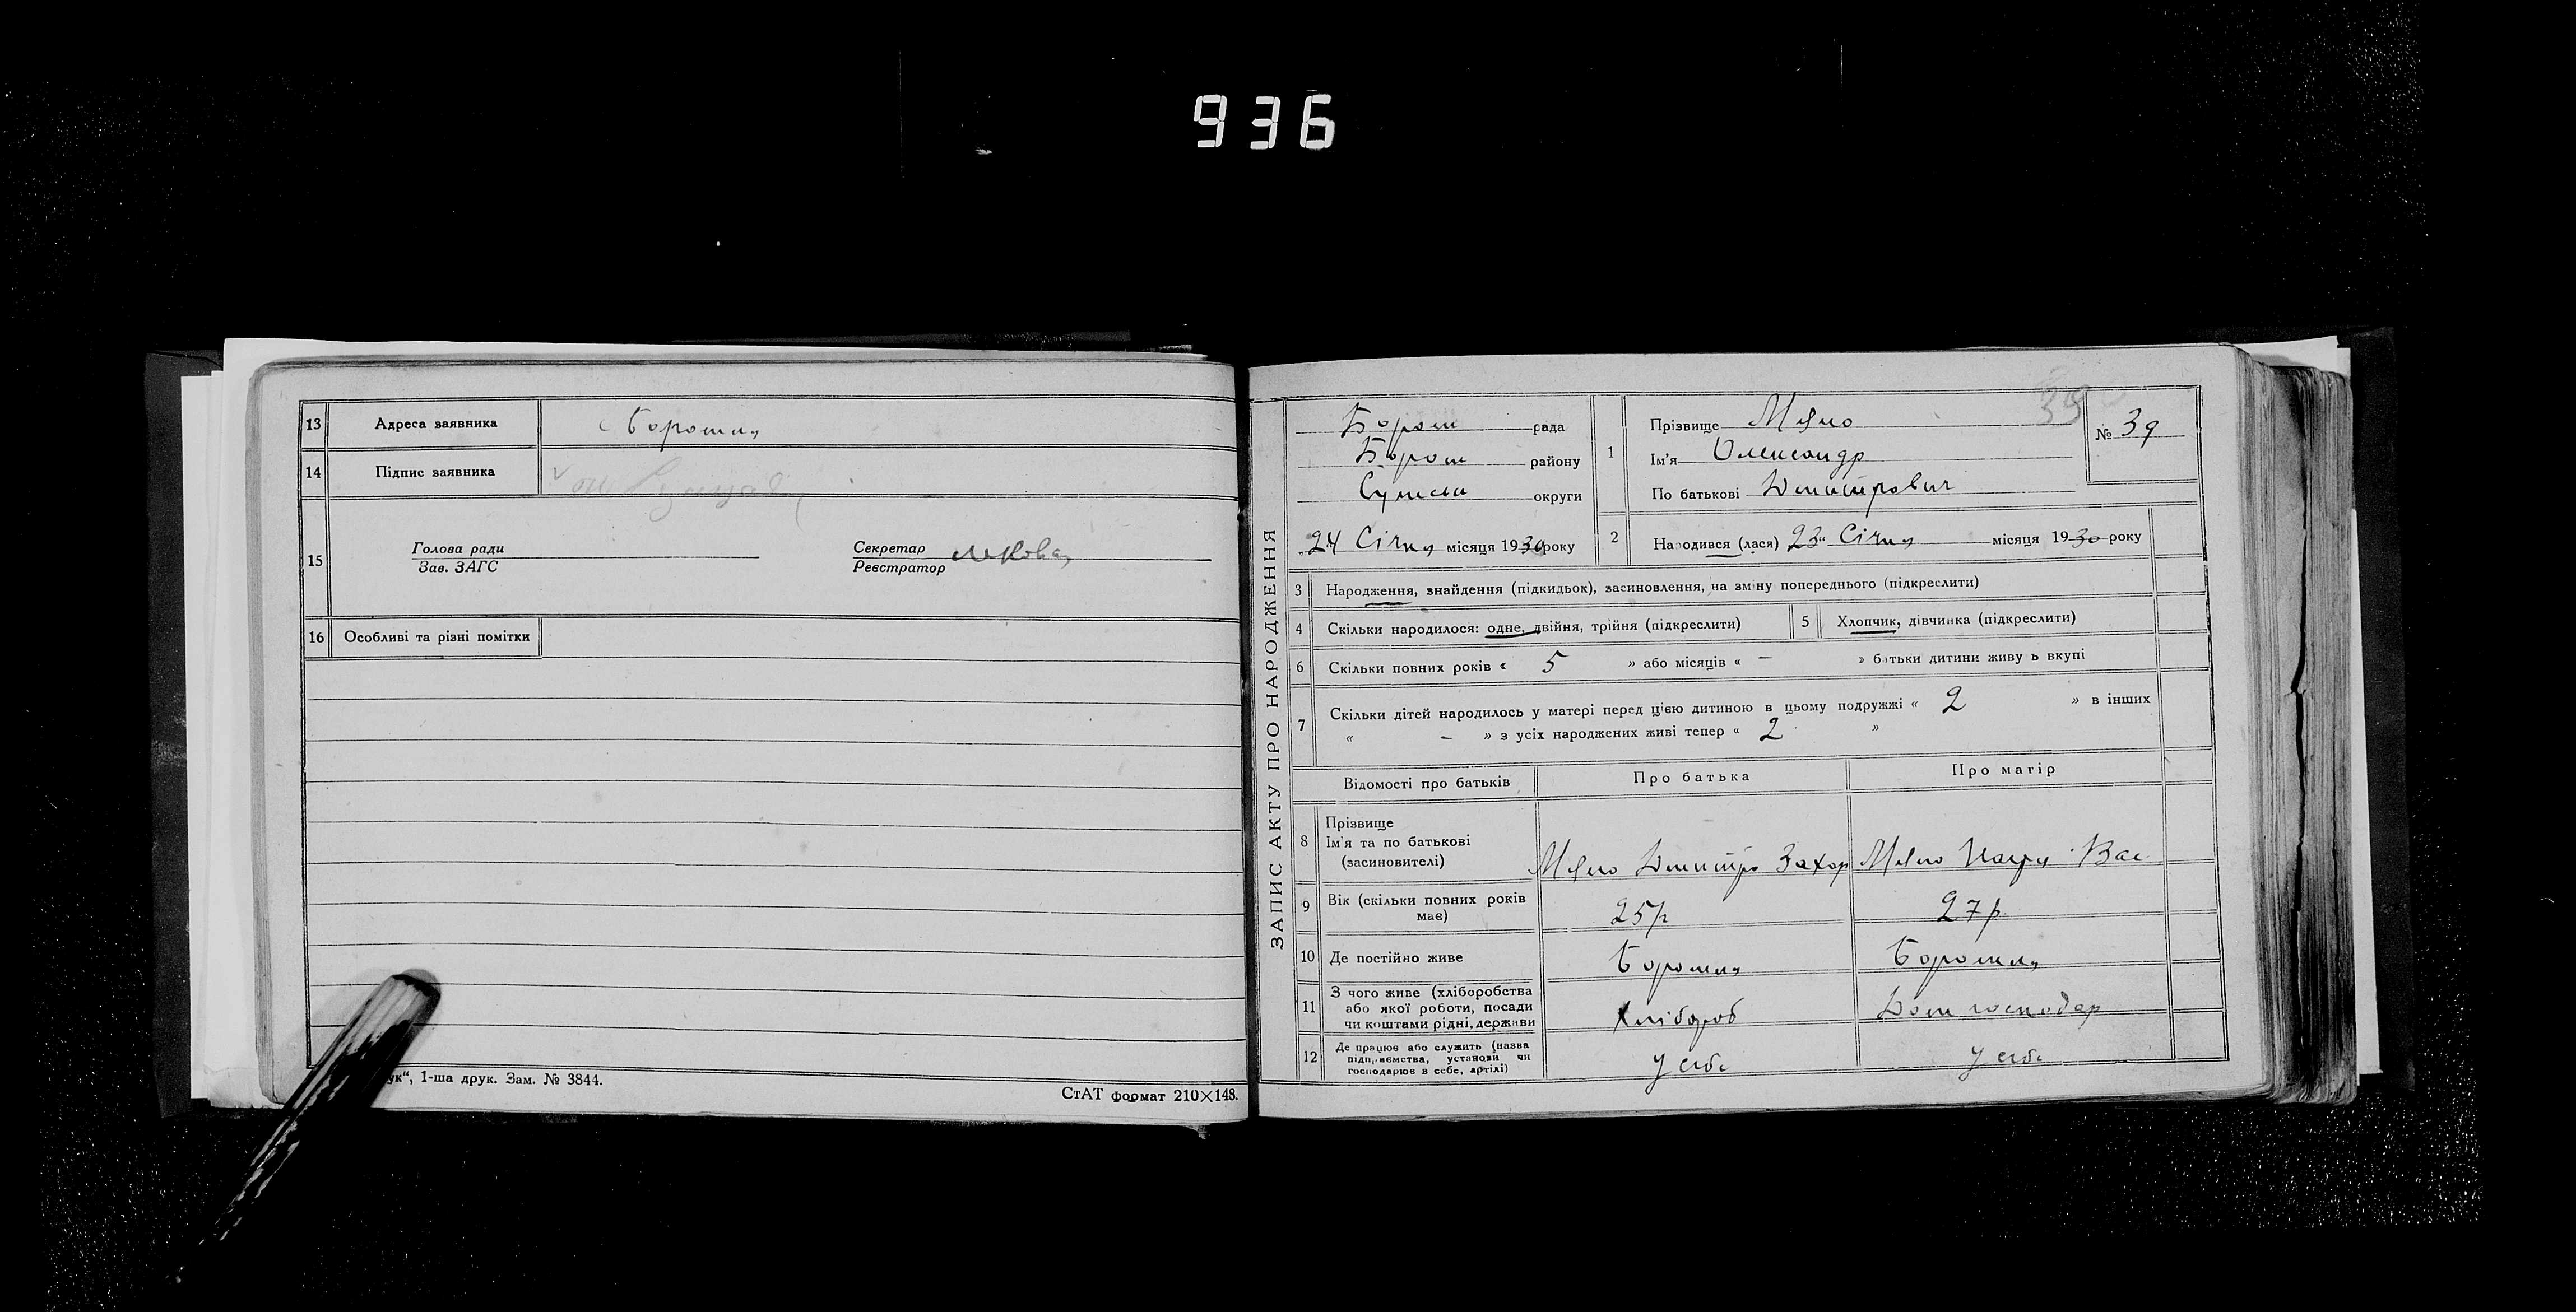 936
13 Адреса заявника с Боромля
14 Підпис заявника
15 Голова ради Секретар
Зав. ЗАГС Реєстратор
16 Особливі та різні помітки
ук“, 1-ша друк. Зам. № 3844.
СтАТ формат 210×148.
ЗАПИС АКТУ ПРО НАРОДЖЕННЯ
Бором рада
Бором району
Сумськ округи
„24 Січня місяця 1930 року
39
№ 39
1 Прізвище
Ім'я Олександр
По батькові Дмитрович
2 Народився (лася) 23“ Січня місяця 1930 року
3 Народження, знайдення (підкидьок), засиновлення, на зміну попереднього (підкреслити)
4 Скільки народилося: одне, двійня, трійня (підкреслити) 5 Хлопчик, дівчинка (підкреслити)
6 Скільки повних років « 5 » або місяців « – » батьки дитини живу ь вкупі
7 Скільки дітей народилось у матері перед цією дитиною в цьому подружжі « 2 » в інших
« – » з усіх народжених живі тепер « 2 »
Відомості про батьків Про батька Про матір
8 Прізвище
Ім'я та по батькові
(засиновителі) Дмитро Захар Вас
9 Вік (скільки повних років
має) 25р 27р.
10 Де постійно живе Боромля Боромля
11 З чого живе (хліборобства
або якої роботи, посади
чи коштами рідні, держави Хлібороб Дом господар
12 Де працює або служить (назва
підприємства, установи чи
господарює в себе, артілі) У себе У себе